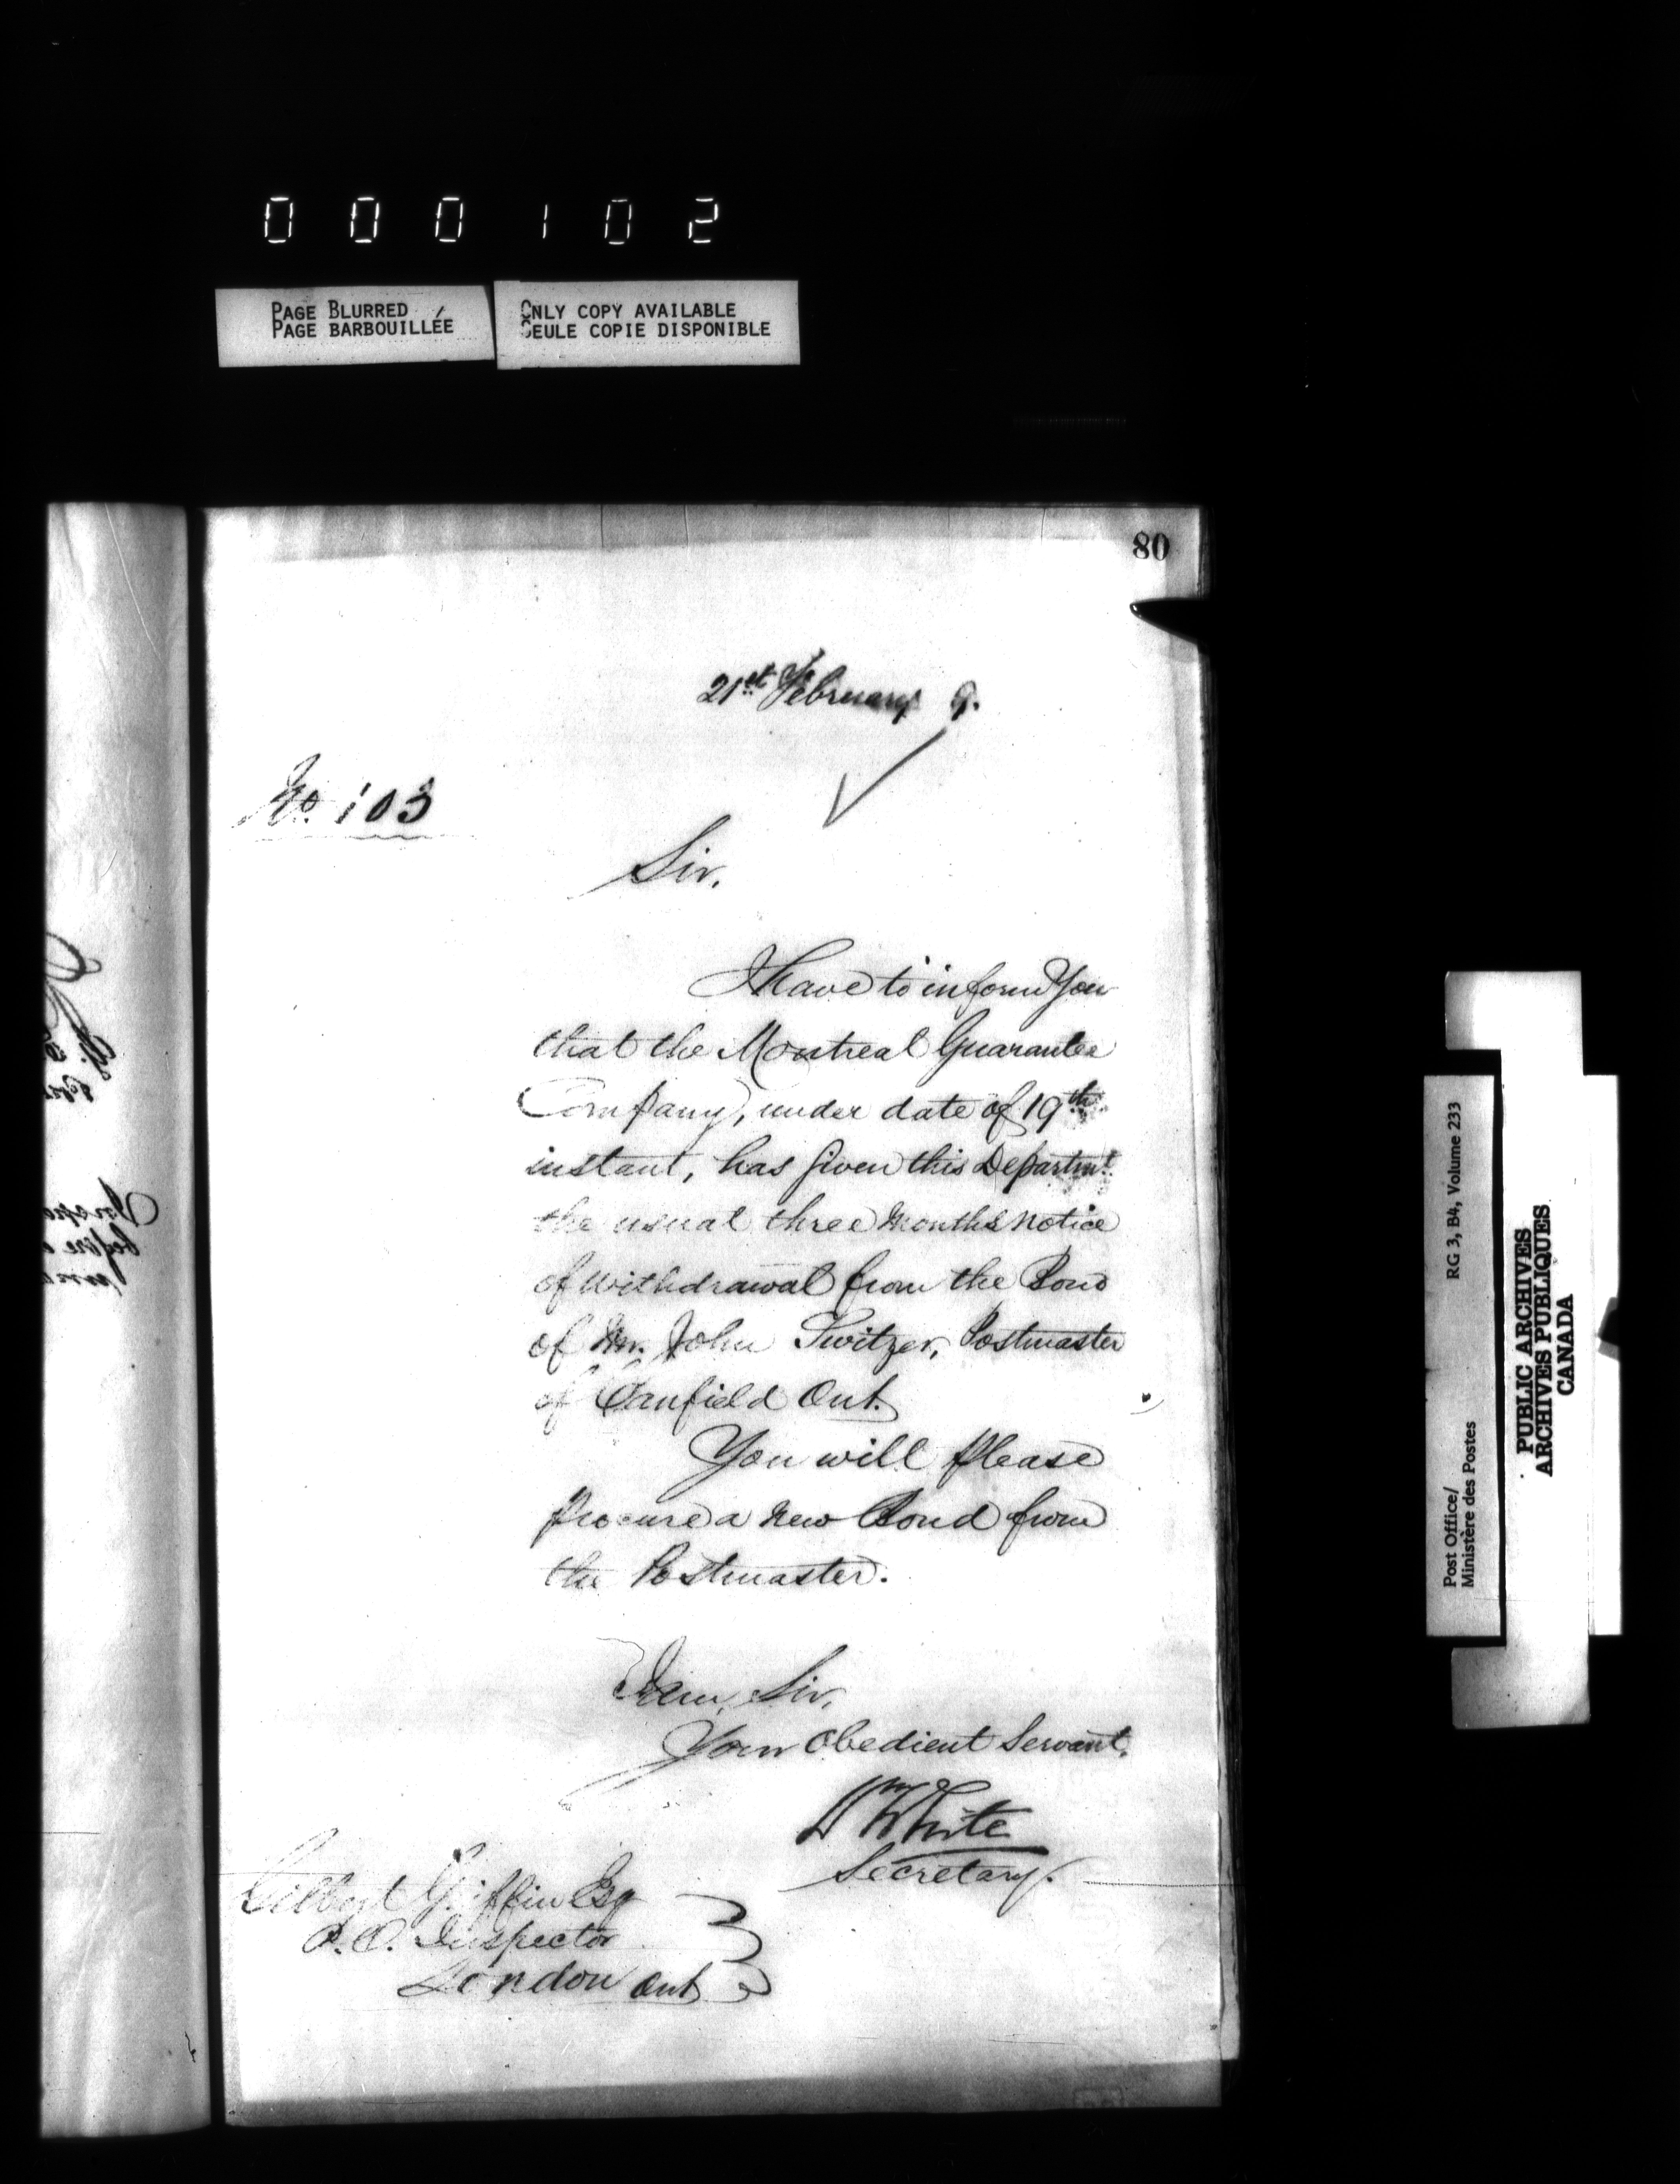 000102
PAGE BLURRED
PAGE BARBOUILLÉE
ONLY COPY AVAILABLE
SEULE COPIE DISPONIBLE
80
21st February 9.
No. 103
Sir,
I Have to inform You
that the Montreal Guarantee
Company, under date of 19th
instant, has given this Departmt.
the usual three Months notice
of withdrawal from the Bond
of Mr. John Switzer, Postmaster
of Canfield Ont.
You will please
procure a new Bond from
the Postmaster.
I am, Sir,
Your Obedient Servant,
Wm White
Secretary.
Gilbert Griffin Esq
P.O. Inspector
London Ont
Post Office/
Ministère des Postes
RG 3, B4, Volume 233
PUBLIC ARCHIVES
ARCHIVES PUBLIQUES
CANADA